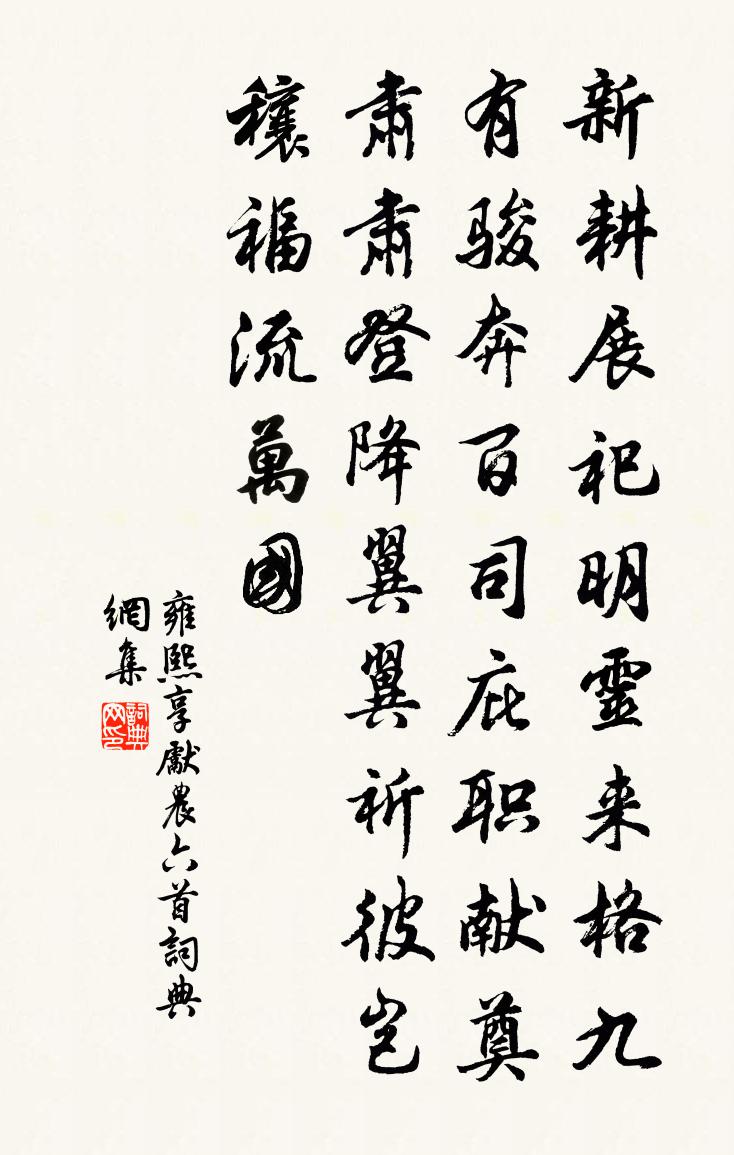 新耕展祀明靈来格九
有骏奔百司庇职献奠
肃肃登降翼翼祈彼岂
穰福流萬國
雍熙享獻農六首詞典
網集
詞典
网印